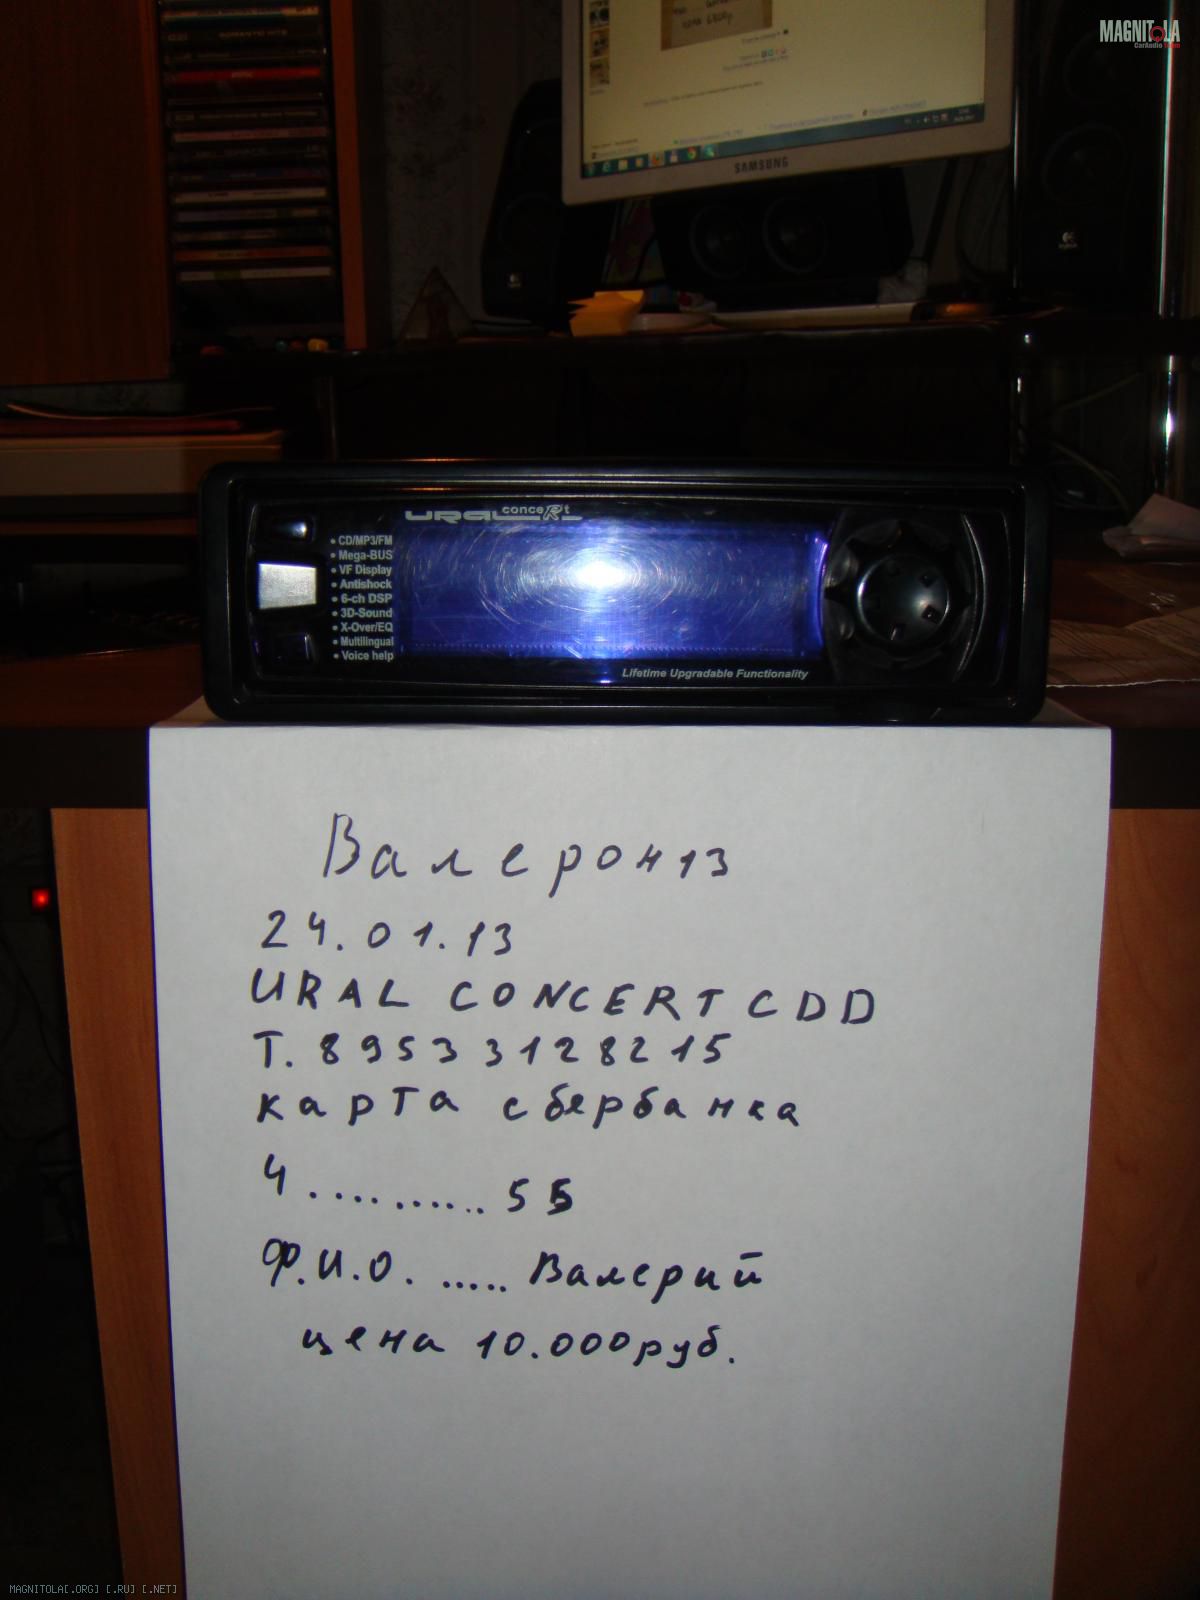 MAGNITOLA
CarAudio Team
SAMSUNG
Logitech
URAL conceRt
• CD/MP3/FM
• Mega-BUS
• VF Display
• Antishock
• 6-ch DSP
• 3D-Sound
• X-Over/EQ
• Multilingual
• Voice help
Lifetime Upgradable Functionality
Валерон13
24.01.13
URAL CONCERT CDD
Т. 89533128215
карта сбербанка
4........... 55
Ф.И.О. ..... Валерий
цена 10.000руб.
MAGNITOLA[.ORG] [.RU] [.NET]